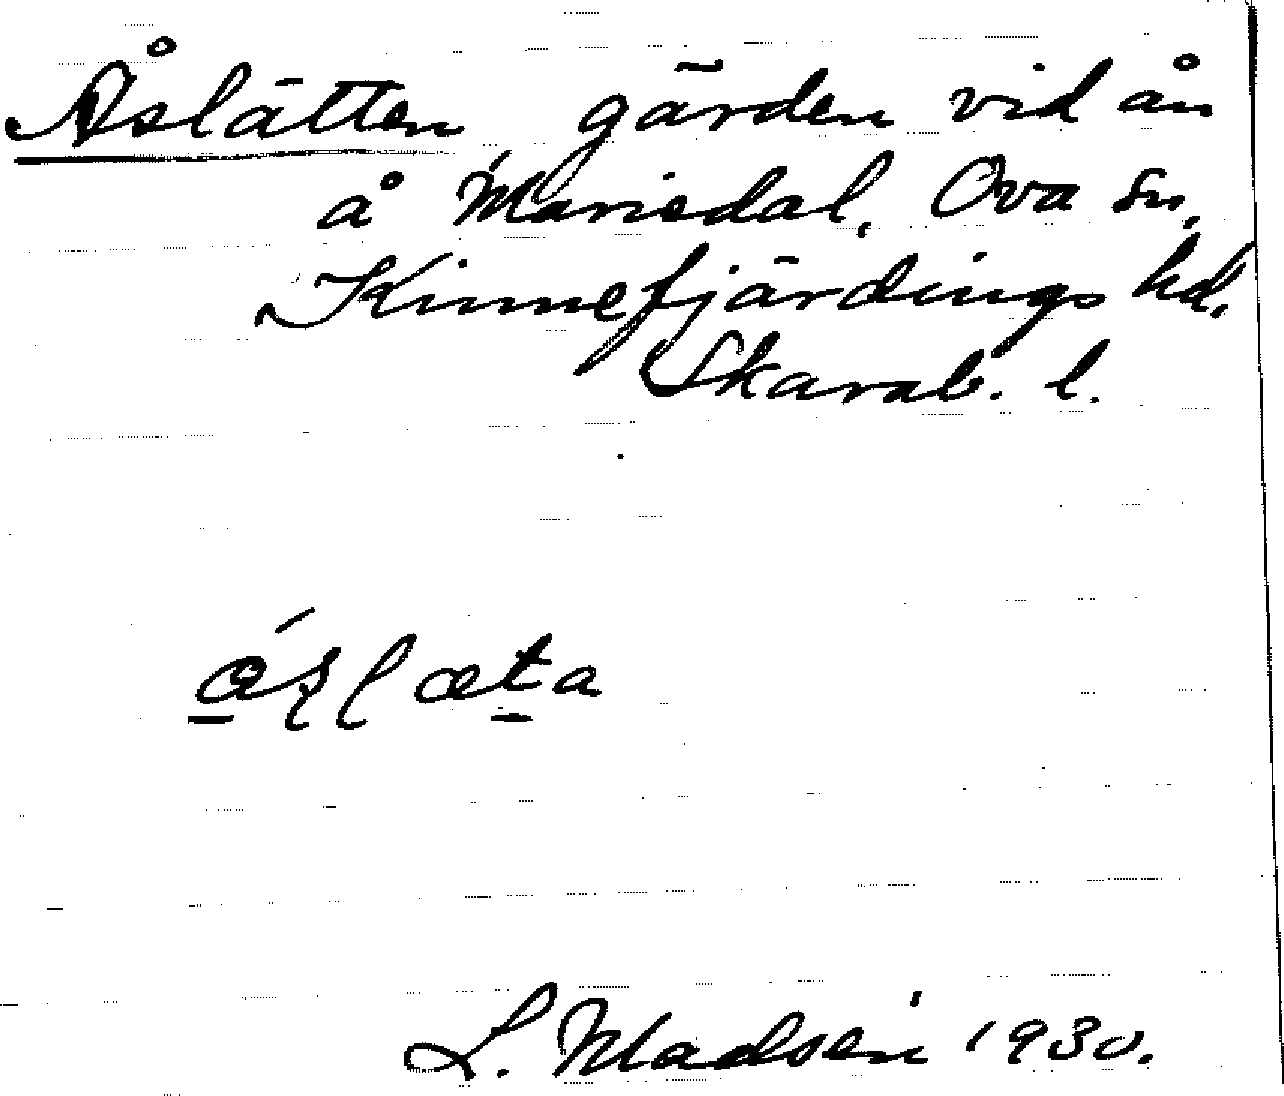 Åslätten gärden vid ån
å Mariedal, Ova sn,
Kinnefjärdings hd,
Skarab. l.
áslæta
L. Madsén 1930.